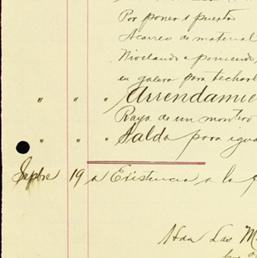 Por poner 1 puerta
Acarreo de material
Nivelando a
en galera para techar
" " " Arrendamie
Raya de un montero
" " " Salda para igua
Sepbre 19 a Existencia a la
Hda Las M